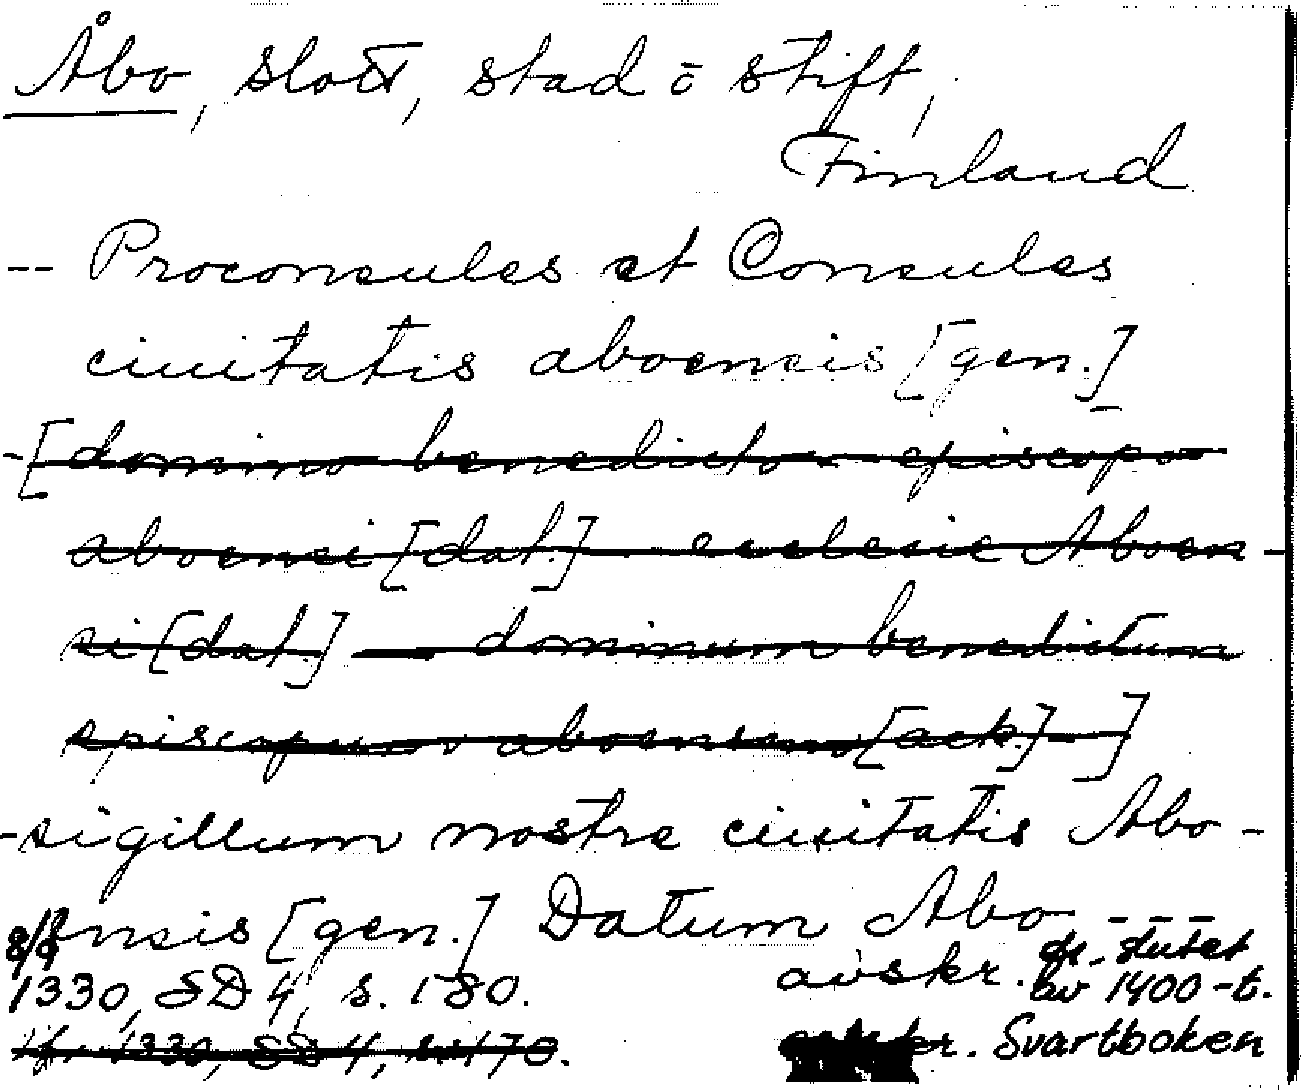 Åbo, slott, stad o stift,
Finland
-- Proconsules et Consules
ciuitatis aboensis [gen.]
-[domino benedicto episcopo
aboensi [dat.] ecclesie Aboen-
si [dat.] — dominum benedictum
episcopum aboensem [ack.] - ]
-sigillum nostre ciuitatis Abo-
ensis [gen.] Datum Abo ---
8/9 1330, SD 4, s. 180. avskr. fr. slutet av 1400-t.
1330, SD 4, s. 170. Svartboken